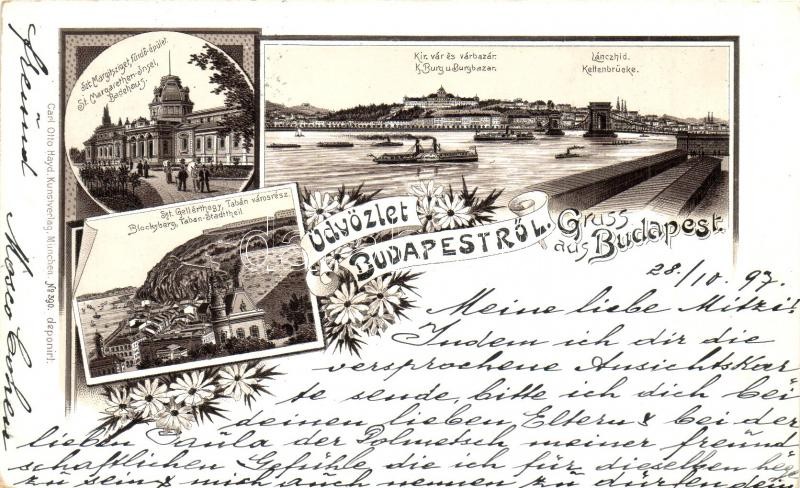 Szt. Margitsziget, fürdő-épület
St. Margarethen-Insel,
Badehaus.
Kir. vár és várbazár.
K. Burg u. Burgbazar.
Lánczhid.
Kettenbrücke.
Szt. Gellérthegy, Tabán városrész.
Blocksberg, Taban-Stadttheil.
Üdvözlet
BUDAPESTRŐL.
Gruss
aus Budapest.
Carl Otto Hayd, Kunstverlag, München. No 390. deponirt.
28./10. 97.
Meine liebe Mitzi!
Indem ich dir die
versprochene Ansichtskar
te sende, bitte ich dich bei
deinen lieben Eltern & bei der
lieben der Dolmetsch meiner freund
schaftlichen Gefühle die ich für dieselben hege
zu sein & mich auch nennen zu dürfen dein
Freund